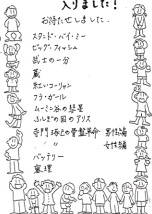 入りました！
お待たせしました。
スタンド・バイ・ミー
ビッグ・フィッシュ
武士の一分
蔵
紅いコーリャン
フラ・ガール
ムーミン谷の彗星
ふしぎの国のアリス
寺門琢己の骨盤革命 男性編
〃 〃 女性編
バッテリー
整理